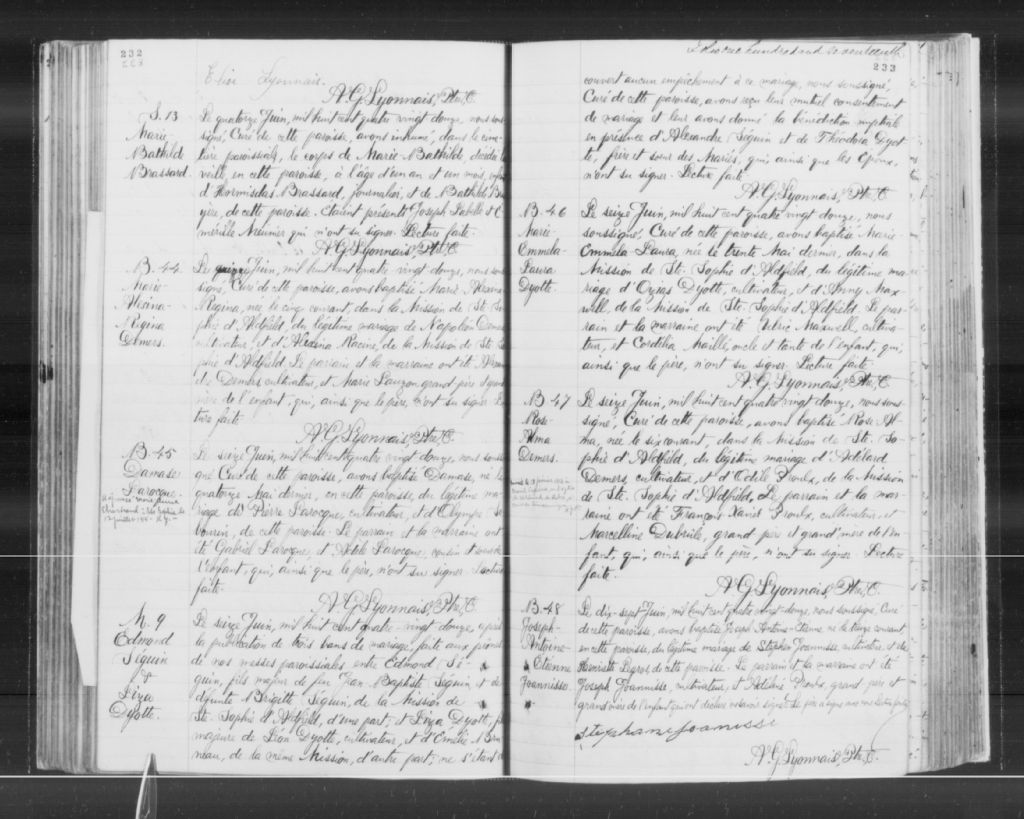 232
Elise Lyonnais.
A. G. Lyonnais, Ptre, C.
S. 13
Marie
Bathilde
Brassard.
Le quatorze Juin, mil huit cent quatre vingt douze, nous sous
signé, Curé de cette paroisse, avons inhumé, dans le cime
tière paroissial, le corps de Marie Bathilde, décédée
veille en cette paroisse, à l'âge d'un an et un mois, enfant
d'Hormisdas Brassard, journalier, et de Bathilde
de cette paroisse. Etaient présents Joseph Labelle et
Meunier qui n'ont su signer. Lecture faite.
A. G. Lyonnais, Ptre, C.
B. 44
Marie
Alexina
Regina
Demers.
Le quinze Juin, mil huit cent quatre vingt douze, nous sous
signé, Curé de cette paroisse, avons baptisé Marie Alexina
Regina, née le cinq courant, dans la Mission de Ste So
phie d'Aldfield, du légitime mariage de Napoléon Demers
cultivateur, et d'Alexina Racine, de la Mission de Ste So
phie d'Aldfield. Le parrain et la marraine ont été
Demers cultivateur, et Marie Lauzon grand père et grand
mère de l'enfant, qui, ainsi que le père, n'ont su signer. Lec
ture faite.
A. G. Lyonnais, Ptre, C.
B. 45
Damase
Larocque.
Le seize Juin, mil huit cent quatre vingt douze, nous sous
gné Curé de cette paroisse, avons baptisé Damase, né le
quatorze Mai dernier, en cette paroisse, du légitime ma
riage de Pierre Larocque, cultivateur, et d'Olympe
de cette paroisse. Le parrain et la marraine ont
été Gabriel Larocque, et Larocque, cousin et
l'enfant, qui, ainsi que le père, n'ont su signer. Lecture
faite.
A. G. Lyonnais, Ptre, C.
M. 9
Edmond
Séguin
&
Liza
Dyotte.
Le seize Juin, mil huit cent quatre-vingt douze, après
la publication de trois bans de mariage, faite aux prônes
de nos messes paroissiales entre Edmond Sé
guin, fils majeur de feu Jean Baptiste Séguin et de
défunte Brigitte Séguin, de la Mission de
Ste Sophie d'Aldfield, d'une part, et Liza Dyotte,
majeure de Léon Dyotte, cultivateur, et d'Emélie
neau, de la même Mission, d'autre part; ne s'étant dé
Two hundred and seventeenth
233
couvert aucun empêchement à ce mariage, nous soussigné,
Curé de cette paroisse, avons reçu leur mutuel consentement
de mariage et leur avons donné la bénédiction nuptiale
en présence d'Alexandre Séguin et de Théodora Dyot
te, frère et sœur des Mariés, qui, ainsi que les Epoux,
n'ont su signer. Lecture faite.
A. G. Lyonnais, Ptre, C.
B. 46
Marie
Emmela
Laura
Dyotte.
Le seize Juin, mil huit cent quatre vingt douze, nous
soussigné, Curé de cette paroisse, avons baptisé Marie
Emmela Laura, née le trente Mai dernier, dans la
Mission de Ste Sophie d'Aldfield, du légitime ma-
riage d'Dyotte, cultivateur, et d'Anny Max
well, de la Mission de Ste Sophie d'Aldfield. Le par-
rain et la marraine ont été Maxwell, cultiva-
teur, et Cordélia Maillé, oncle et tante de l'enfant, qui,
ainsi que le père, n'ont su signer. Lecture faite.
A. G. Lyonnais, Ptre, C.
B. 47
Rose
Alma
Demers.
Le seize Juin, mil huit cent quatre vingt douze, nous sous-
signé, Curé de cette paroisse, avons baptisé Rose Al
ma, née le six courant, dans la Mission de Ste So-
phie d'Aldfield, du légitime mariage d'Adélard
Demers, cultivateur, et d'Odile Proulx, de la Mission
de Ste Sophie d'Aldfield. Le parrain et la mar-
raine ont été François Xavier Proulx, cultivateur, et
Marcelline Dubreuile, grand père et grand'mère de l'en
fant, qui, ainsi que le père, n'ont su signer. Lecture
faite.
A. G. Lyonnais, Ptre, C.
B. 48
Joseph
Antoine
Etienne
Joannisse.
Le dix-sept Juin, mil huit cent quatre vingt douze, nous soussigné, Curé
de cette paroisse, avons baptisé Joseph Antoine Etienne né le treize courant,
en cette paroisse, du légitime mariage de Stephen Joannisse, cultivateur, et de
Henriette Legros, de cette paroisse. Le parrain et la marraine ont été
Joseph Joannisse, cultivateur, et Adeline Proulx, grand père et
grand'mère de l'enfant qui ont déclaré ne savoir signer. Le père a signé avec nous. Lecture faite.
Stephane Joannisse
A. G. Lyonnais, Ptre, C.